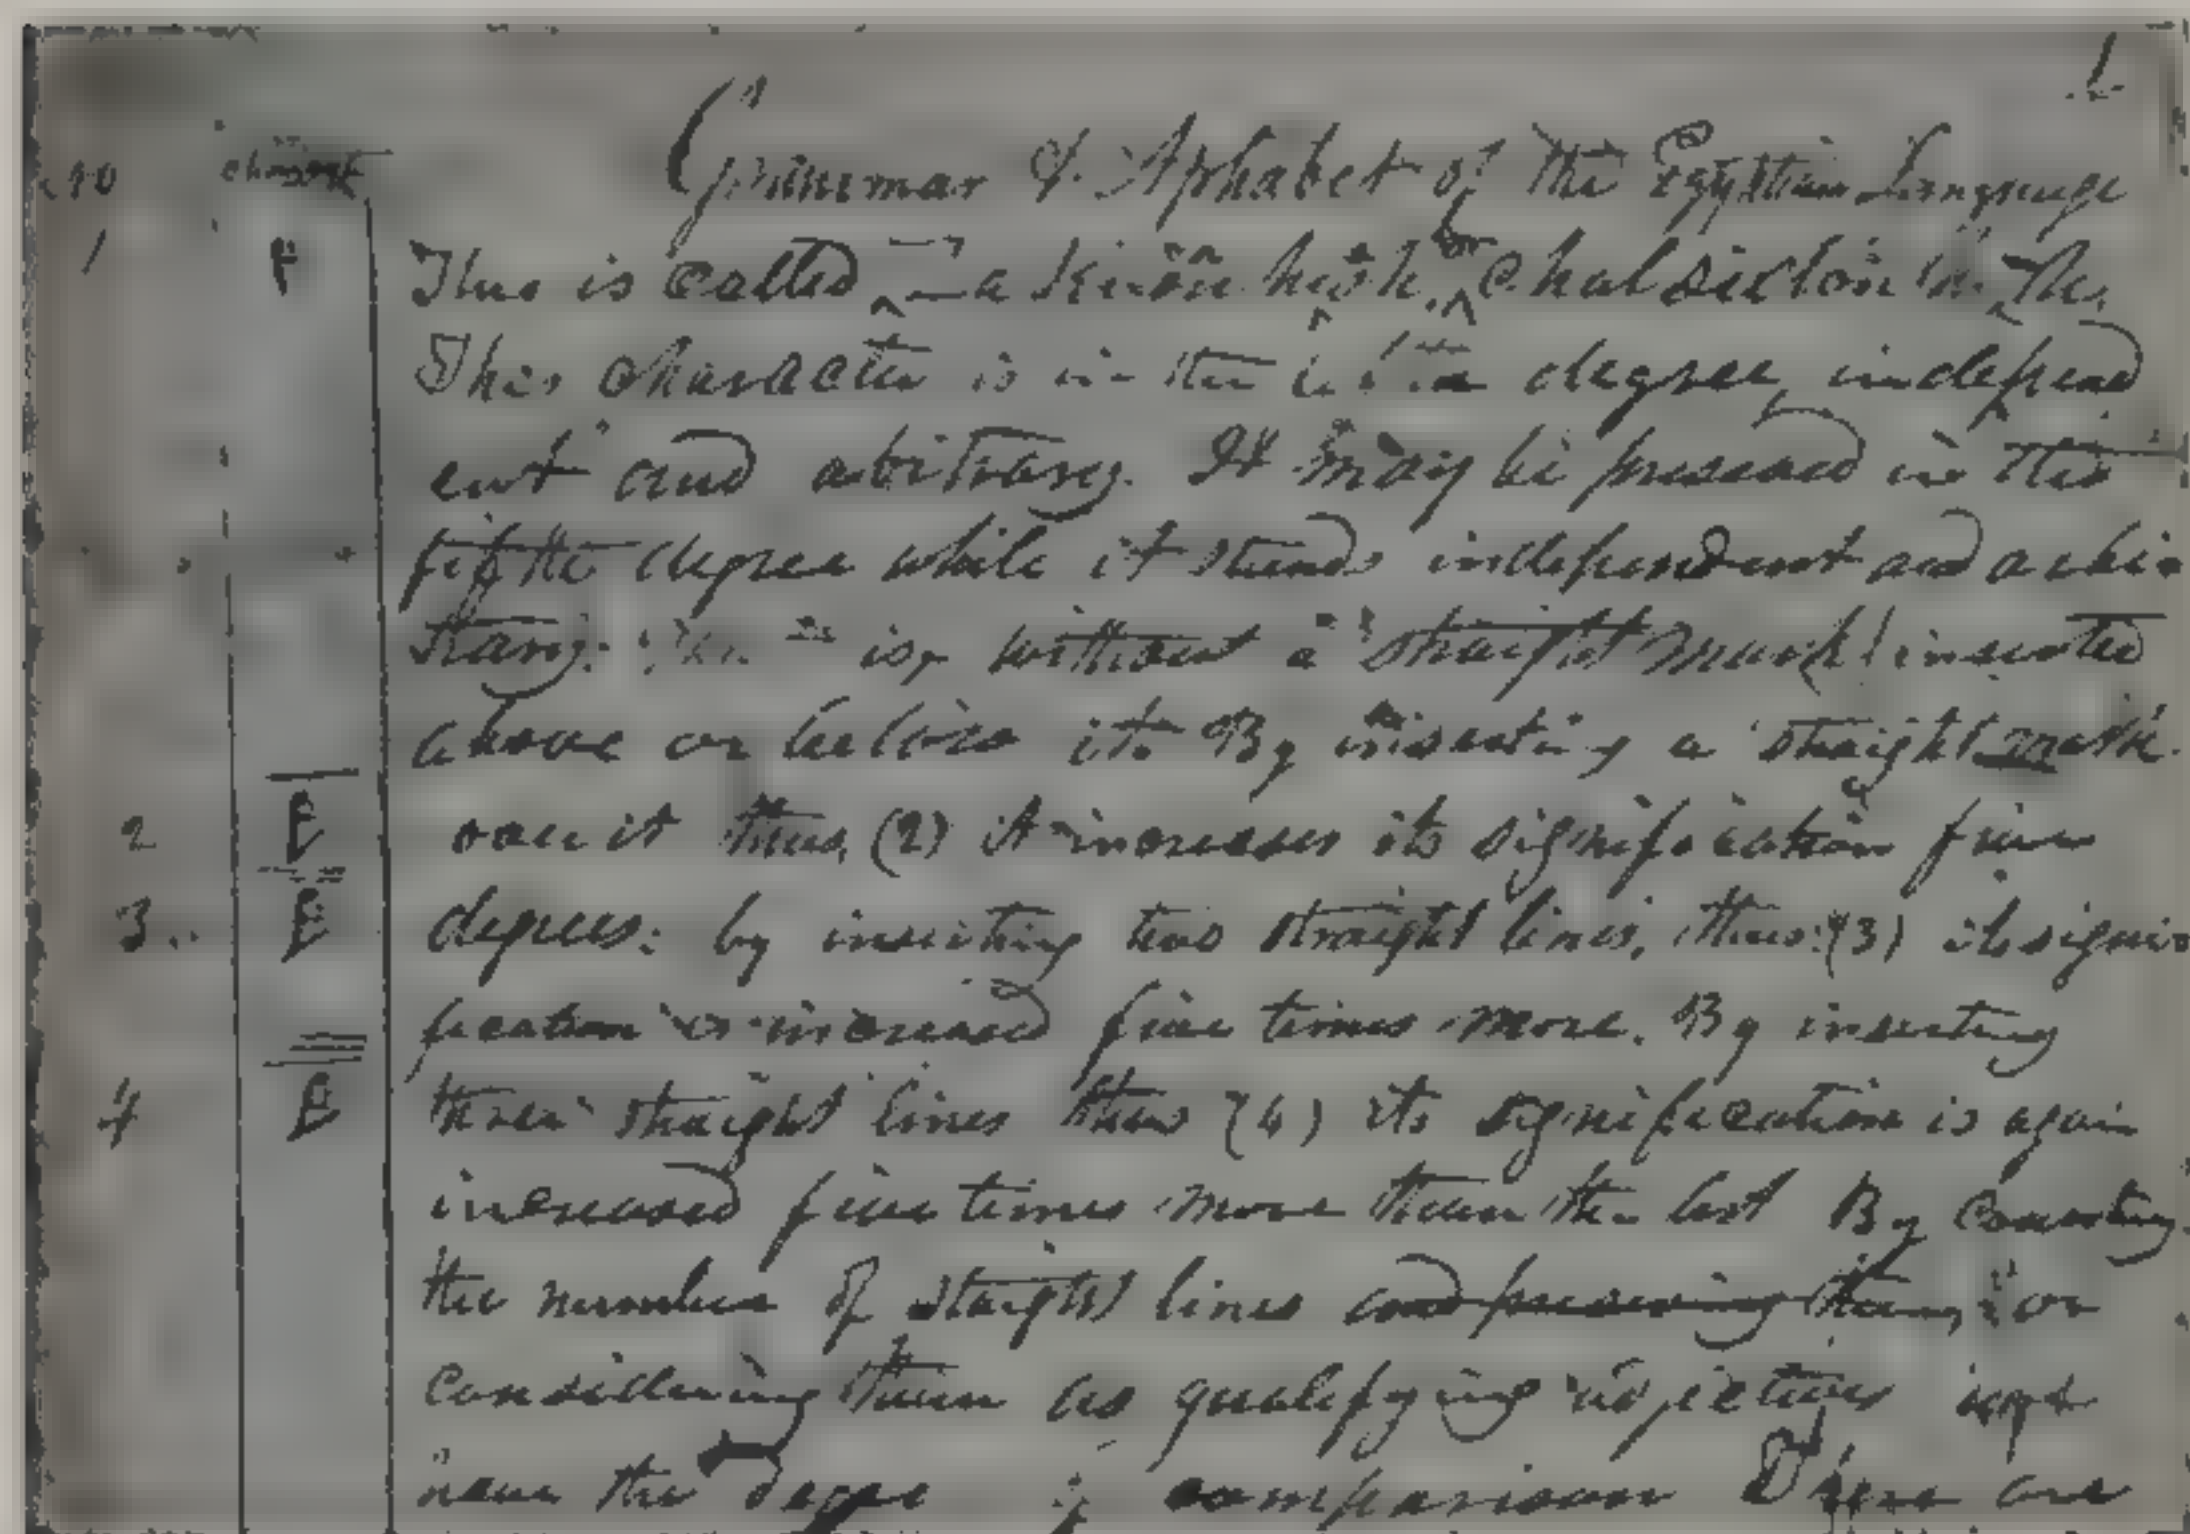 1
Grammar & Aphabet of the Egyptian Language
No character
1 This is called a Kiah brah or Chalsidon
This character is in the degree, independ
ent and abitrary. It may be presevd in the
fifth degree while it stands independent and arbi
trary: is, without a straight mark inserted
above or below it. By inserting a straight mark
2 over it thus, (2) it increases its signification five
3 degrees: by inserting two straight lines, thus: (3) its signi
fication is increased five times more. By inserting
4 three straight lines thus (4) its signification is again
increased five times more than the last By counting
the number of staight lines and preserving them, or
considering them as qualifying adjectives we
have the degrees of comparison There are